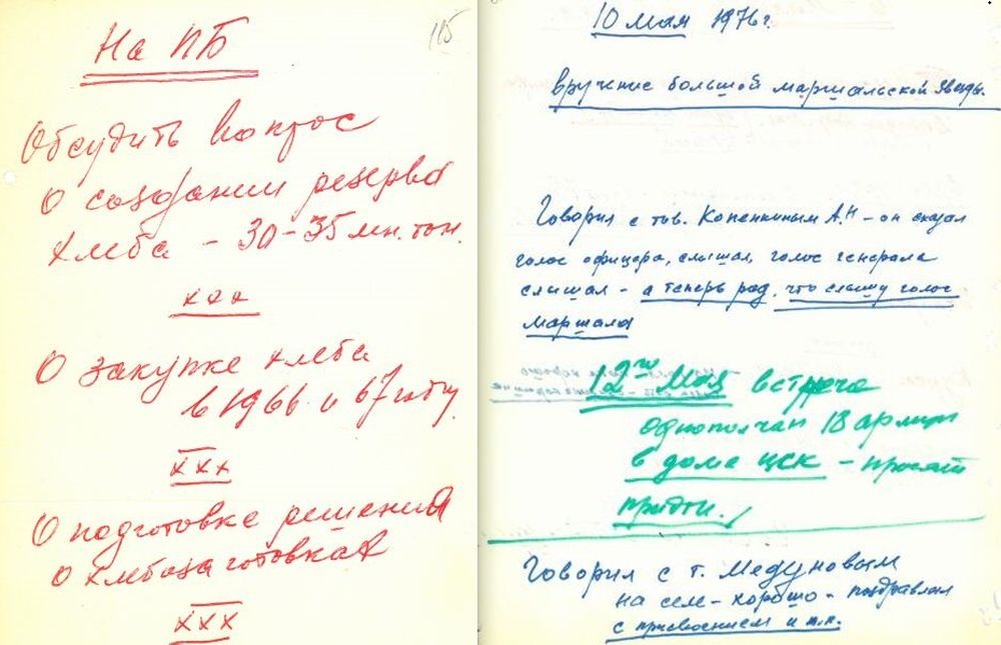 115
На ПБ
Обсудить вопрос
О создании резерва
хлеба - 30-35 мн. тон.
х х х
О закупке хлеба
в 1966 и 67 году
х х х
О подготовке решения
о хлебозаготовках
х х х
10 Мая 1976 г.
вручение большой маршальской звезды.
Говорил с тов. Копенкиным А.Н - он сказал
голос офицера, слышал, голос генерала
слышал - а теперь рад, что слышу голос
маршала
12го Мая встреча
однополчан 18 армии
в доме ЦСК - просят
придти.
Говорил с т. Медуновым
на селе - хорошо - поздравлял
с присвоением и т.п.